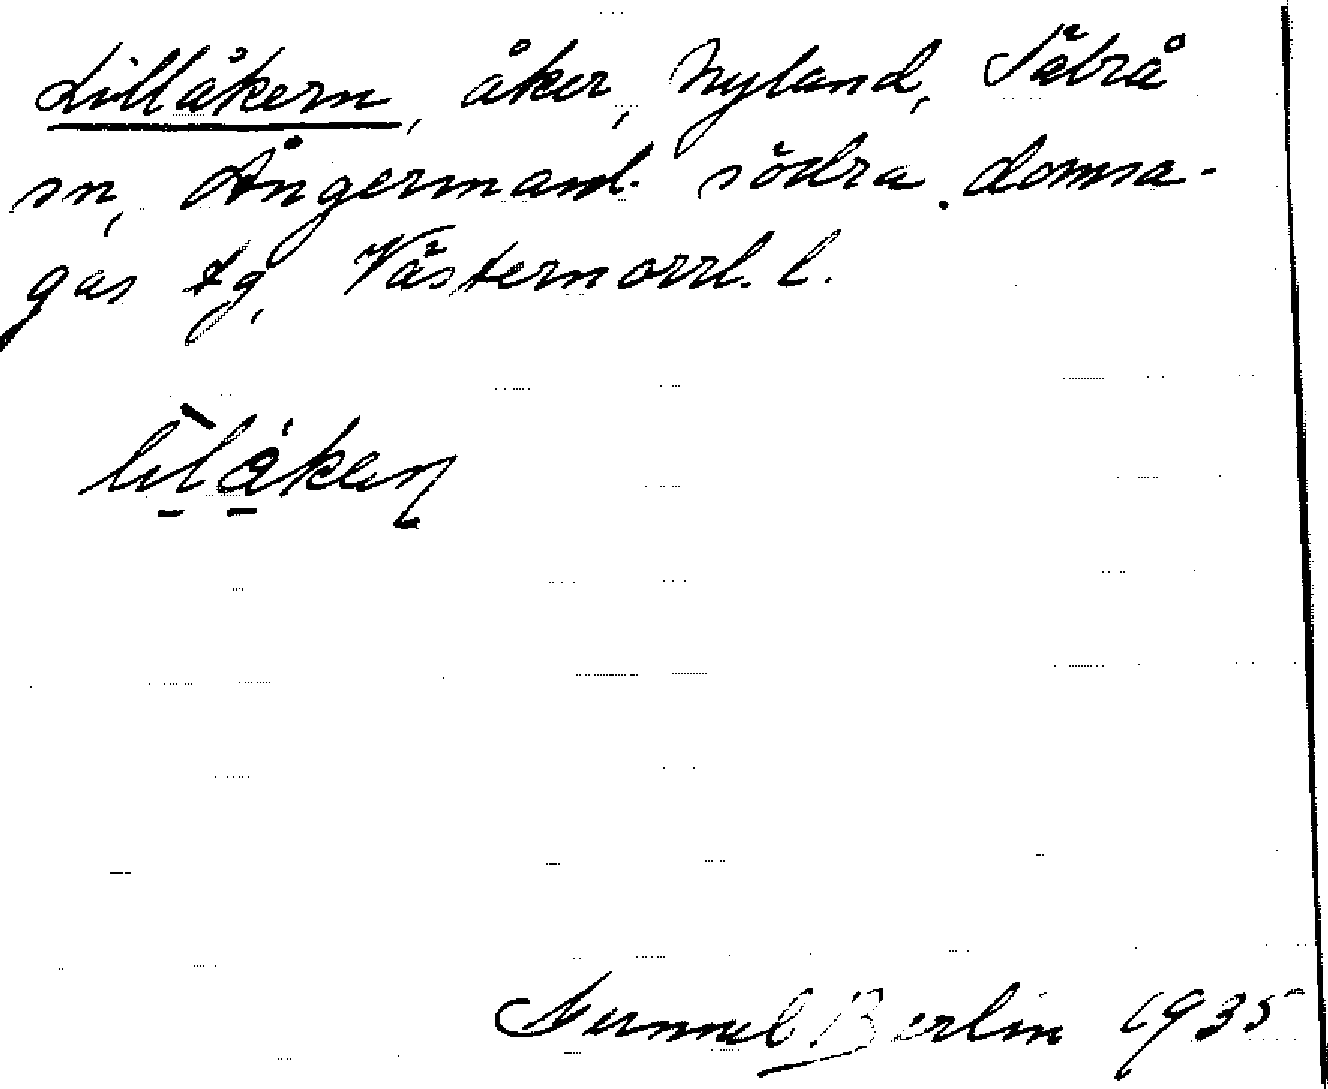 Lillåkern, åker, Nyland, Säbrå
sn, Ångermanl. södra domsa-
gas tg, Västernorrl. l.
lìlåkaɳ
Gunnel Berlin 1935